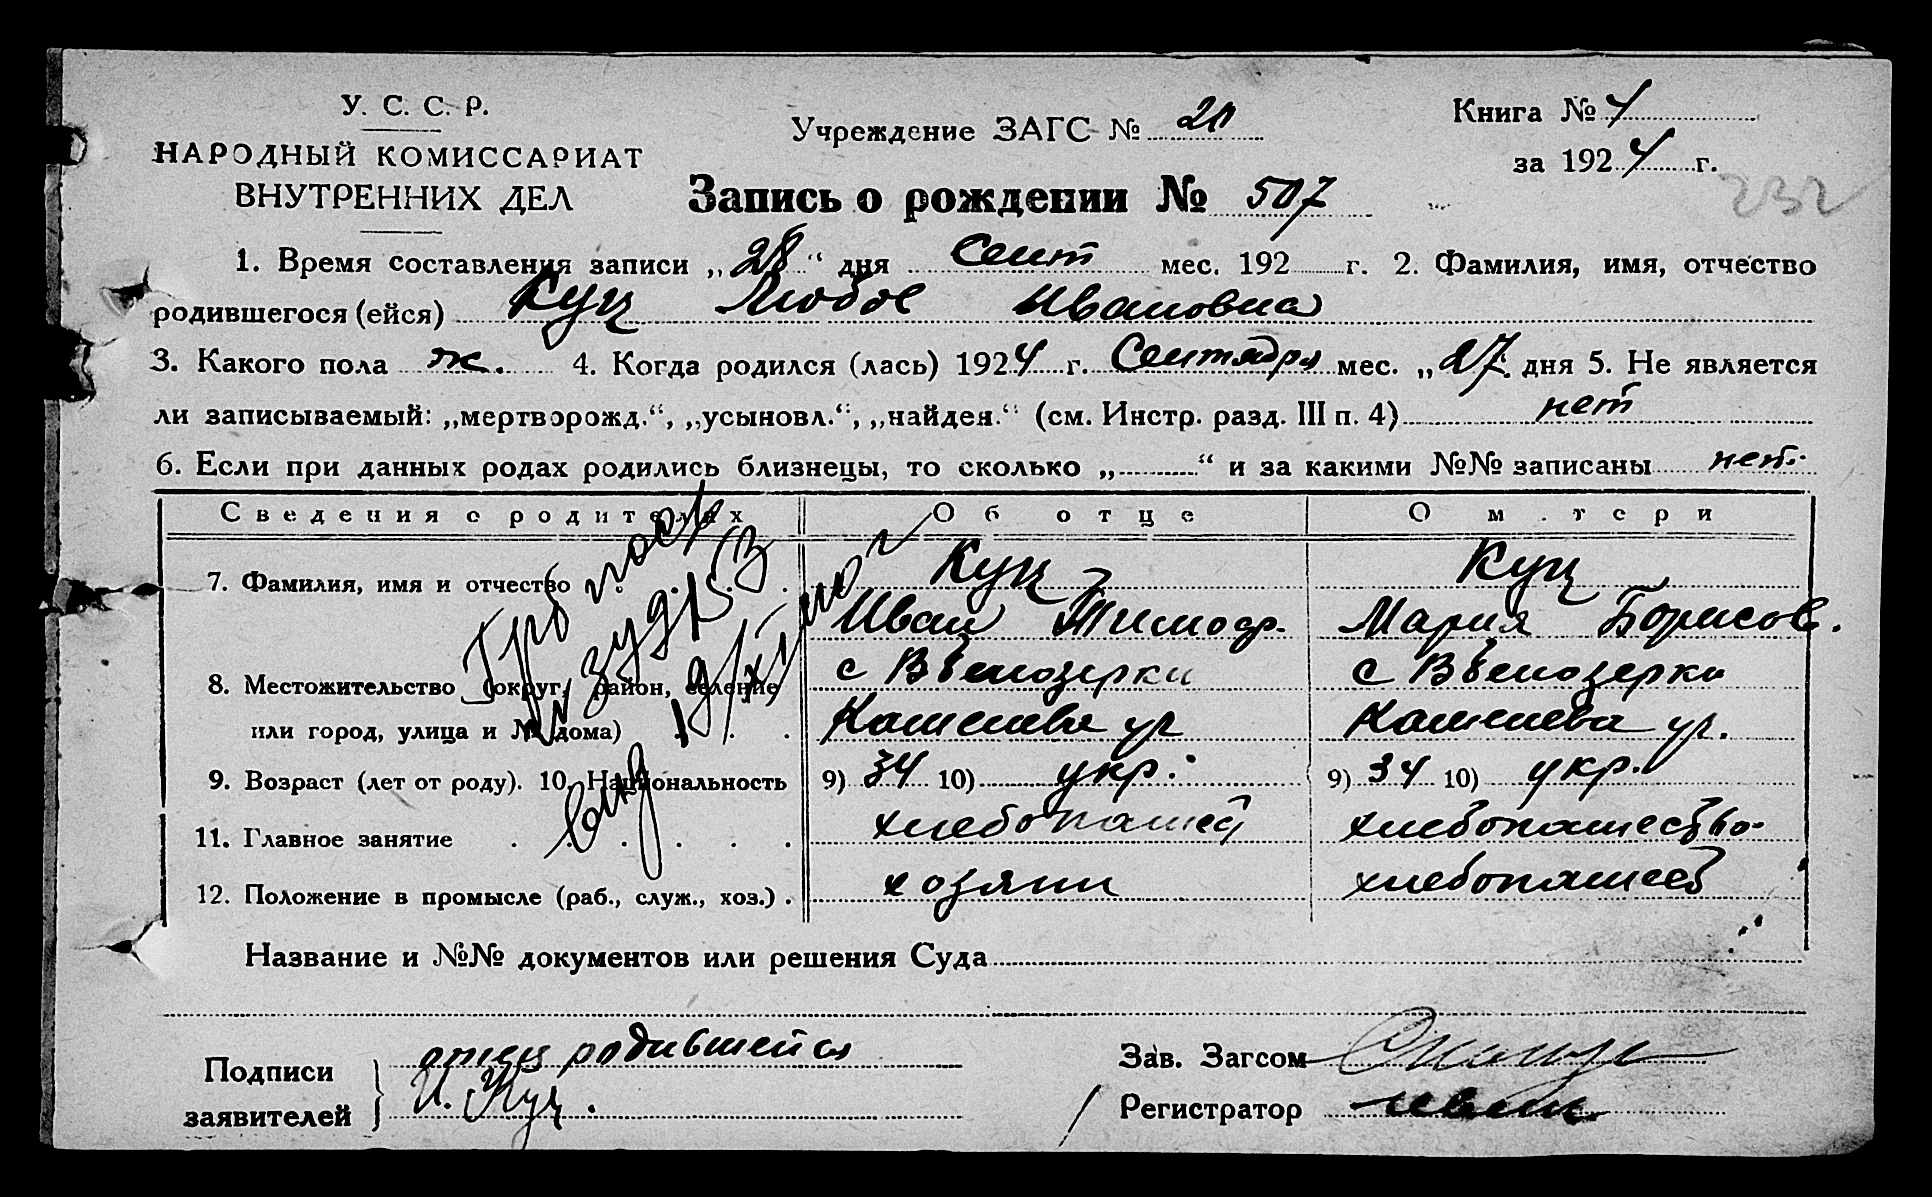 У. С. С. Р.
НАРОДНЫЙ КОМИССАРИАТ
ВНУТРЕННИХ ДЕЛ
Учреждение ЗАГС № 20
Книга № 4
за 1924 г.
232
Запись о рождении № 507
1. Время составления записи „28“ дня Сент мес. 192 г. 2. Фамилия, имя, отчество
родившегося (ейся) Куц Любов Ивановна
3. Какого пола ж. 4. Когда родился (лась) 1924 г. Сентября мес. „27. дня 5. Не является
ли записываемый: „мертворожд.“, „усыновл.“, „найден.“ (см. Инстр. разд. III п. 4) нет
6. Если при данных родах родились близнецы, то сколько „ “ и за какими №№ записаны нет.
Сведения о родителях Об отце О матери
7. Фамилия, имя и отчество Куц Куц
Иван Тимоф. Мария Борисов.
8. Местожительство (округ, район, селение с с
или город, улица и № дома) ул ул.
9. Возраст (лет от роду). 10. Национальность 9) 34 10) укр. 9) 34 10) укр.
11. Главное занятие хлебопашец хлебопашество.
12. Положение в промысле (раб., служ., хоз.) . хозяин
Название и №№ документов или решения Суда
Подписи заявителей } отец родившейся
И. Куц.
Зав. Загсом
Регистратор